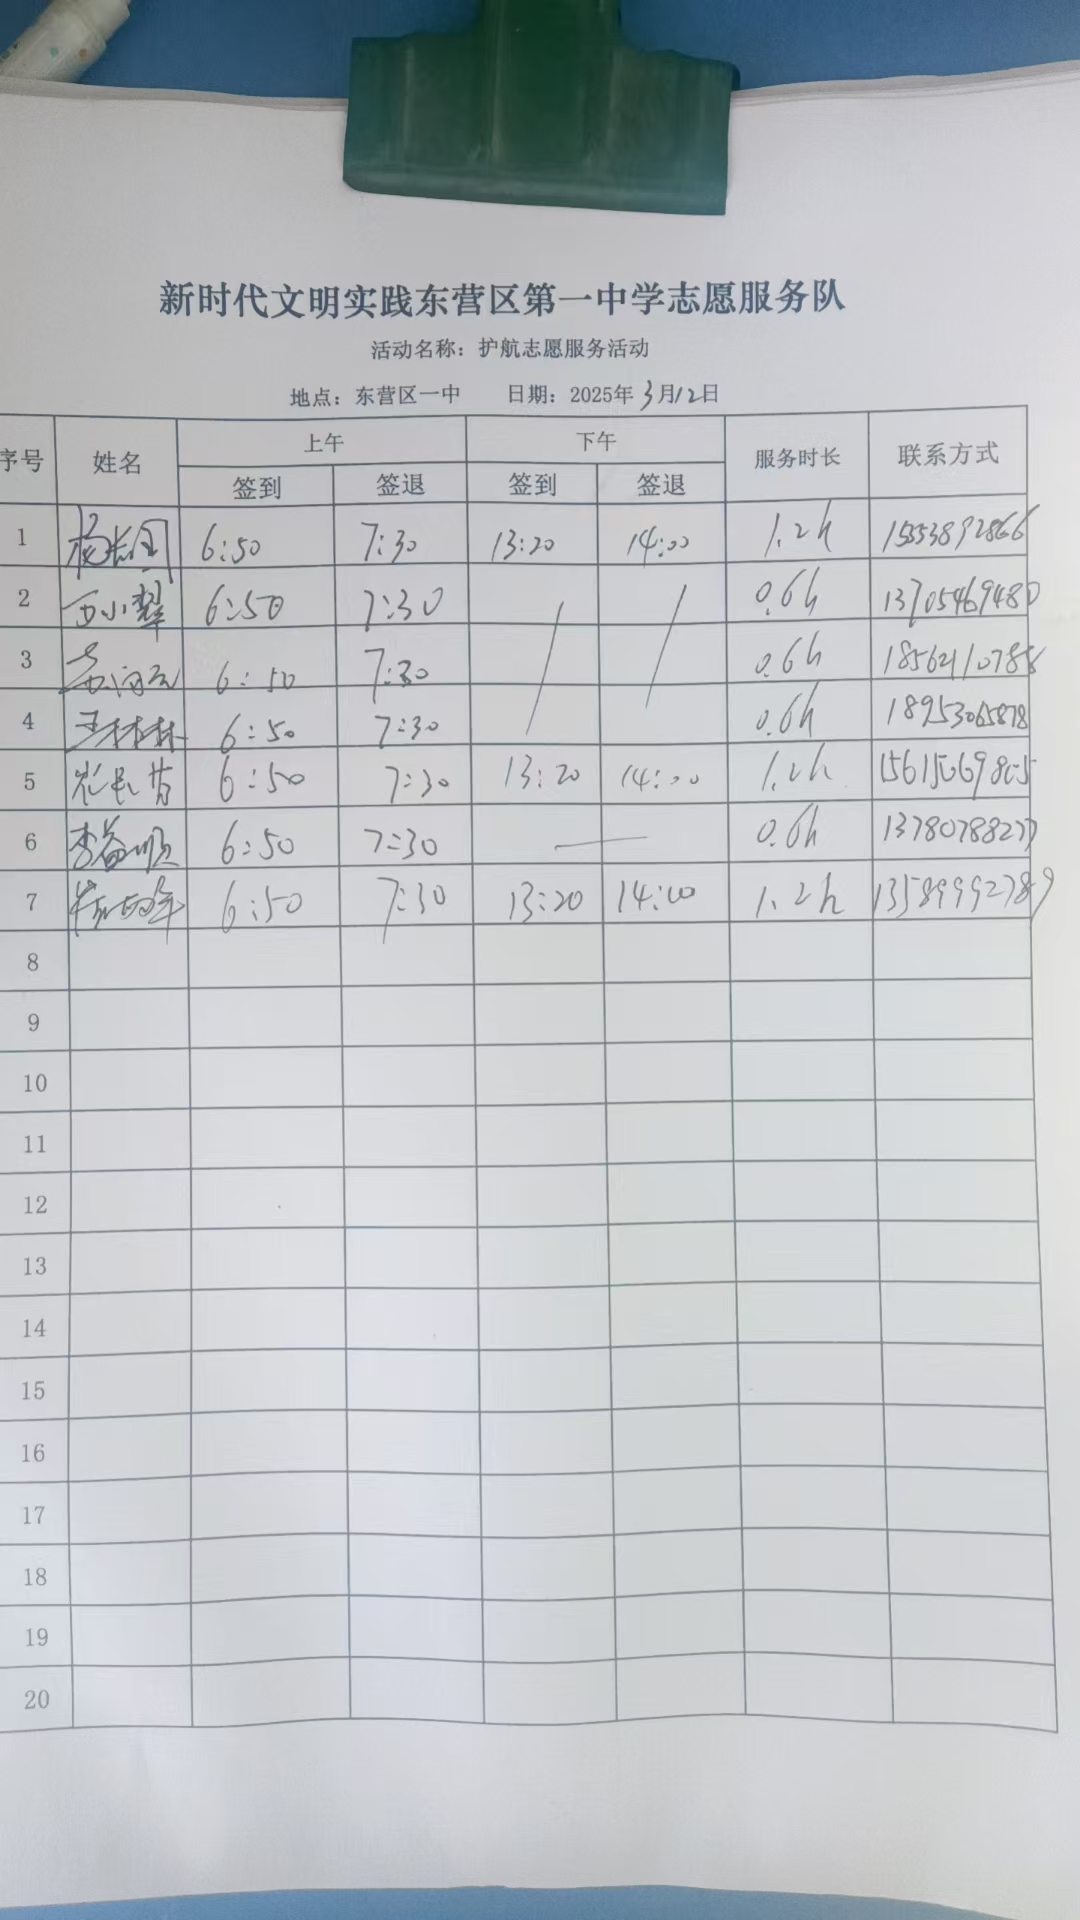 新时代文明实践东营区第一中学志愿服务队
活动名称：护航志愿服务活动
地点：东营区一中 日期：2025年3月12日
序号 姓名 上午 下午 服务时长 联系方式
签到 签退 签到 签退
1 6:50 7:30 13:20 14:00 1.2h 15553892866
2 6:50 7:30 0.6h 13705469480
3 6:50 7:30 0.6h
4 王林林 6:50 7:30 0.6h 18953065878
5 6:50 7:30 13:20 14:00 1.2h
6 李益顺 6:50 7:30 0.6h
7 6:50 7:30 13:20 14:00 1.2h 13589992789
8
9
10
11
12
13
14
15
16
17
18
19
20